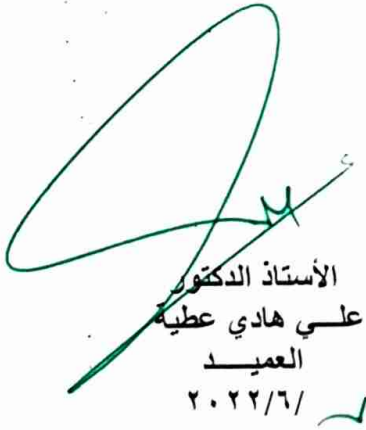 الأستاذ الدكتور
علـــي هادي عطية
العميـــــد
/٢٠٢٢/٦